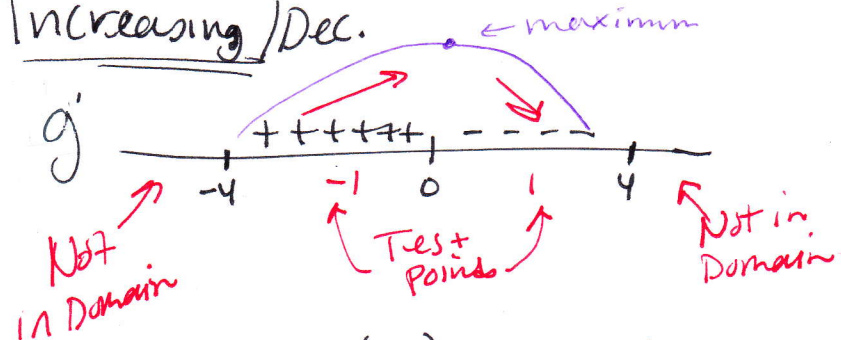 Increasing/Dec.
← maximum
g'
+ + + + + + - - - -
-4 -1 0 1 4
Not in Domain
Test Points
Not in Domain